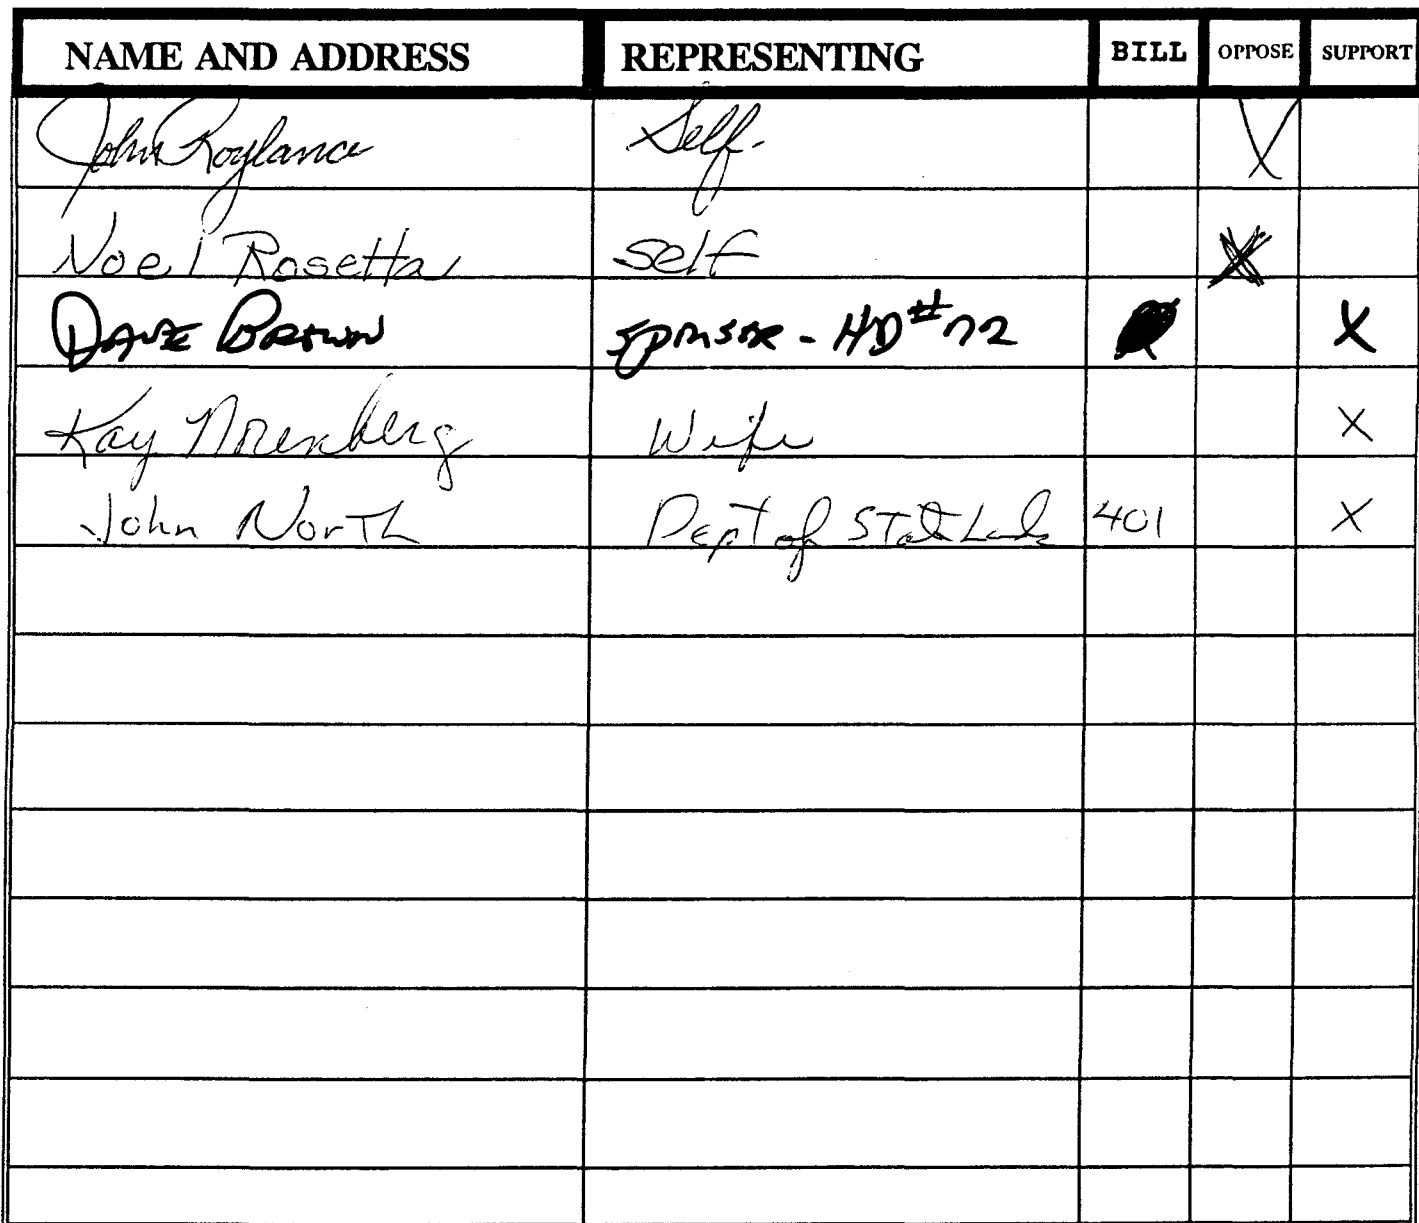 NAME AND ADDRESS REPRESENTING BILL OPPOSE SUPPORT
John Roylance Self. X
Noel Rosetta self X
DAVE BROWN SPONSOR - HD #72 X
Kay Norenberg Wife X
John North Dept of State Lands 401 X